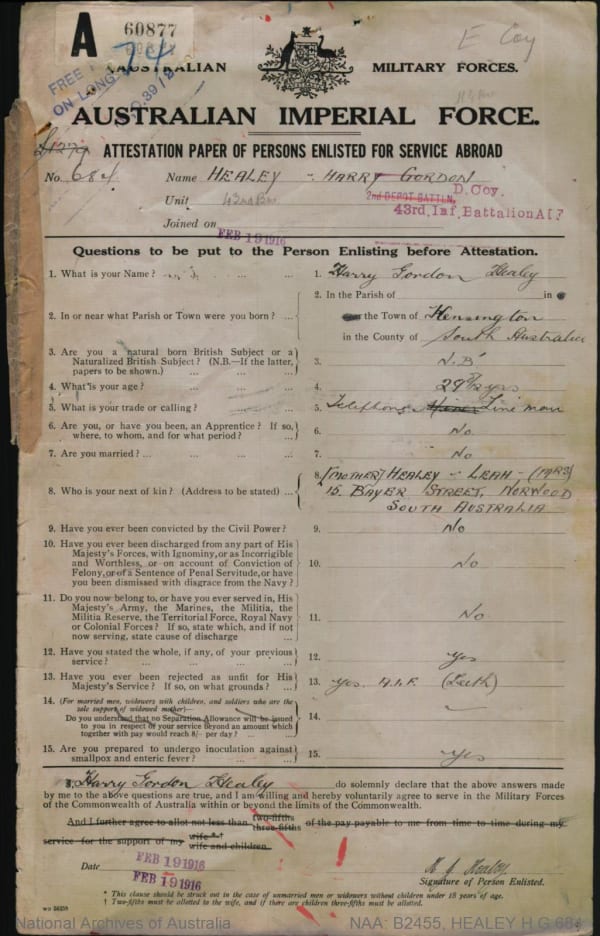 A 60877
E Coy
74
FREE
ON LONG
AUSTRALIAN MILITARY FORCES.
AUSTRALIAN IMPERIAL FORCE.
ATTESTATION PAPER OF PERSONS ENLISTED FOR SERVICE ABROAD
No. 684 Name HEALEY - HARRY GORDON
Unit 43rd Bn 2nd DEPOT BATTLN. D. Coy.
43rd. Inf. Battalion A I F
Joined on FEB 19 1916
Questions to be put to the Person Enlisting before Attestation.
1. What is your Name? ... ... 1. Harry Gordon Healey
2. In or near what Parish or Town were you born? ... 2. In the Parish of in
the Town of Kensington
in the County of South Australia
3. Are you a natural born British Subject or a
Naturalized British Subject? (N.B.—If the latter,
papers to be shown.) ... ... 3. N.B.
4. What is your age? ... ... 4.
5. What is your trade or calling? ... 5. Telephone Line man
6. Are you, or have you been, an Apprentice? If so,
where, to whom, and for what period? ... 6. No
7. Are you married? ... ... ... 7. No
8. Who is your next of kin? (Address to be stated) ... 8. (MOTHER) HEALEY - LEAH - (MRS)
15. BAYER STREET, NORWOOD
SOUTH AUSTRALIA
9. Have you ever been convicted by the Civil Power? 9. No
10. Have you ever been discharged from any part of His
Majesty's Forces, with Ignominy, or as Incorrigible
and Worthless, or on account of Conviction of
Felony, or of a Sentence of Penal Servitude, or have
you been dismissed with disgrace from the Navy? 10. No
11. Do you now belong to, or have you ever served in, His
Majesty's Army, the Marines, the Militia, the
Militia Reserve, the Territorial Force, Royal Navy
or Colonial Forces? If so, state which, and if not
now serving, state cause of discharge ... 11. No
12. Have you stated the whole, if any, of your previous
service? ... ... ... ... 12. Yes
13. Have you ever been rejected as unfit for His
Majesty's Service? If so, on what grounds? ... 13. Yes. A.I.F. (Teeth)
14. (For married men, widowers with children, and soldiers who are the
sole support of widowed mother)—
Do you understand that no Separation Allowance will be issued
to you in respect of your service beyond an amount which
together with pay would reach 8/- per day? ... 14.
15. Are you prepared to undergo inoculation against
smallpox and enteric fever? ... ... 15. Yes
I, Harry Gordon Healey do solemnly declare that the above answers made
by me to the above questions are true, and I am willing and hereby voluntarily agree to serve in the Military Forces
of the Commonwealth of Australia within or beyond the limits of the Commonwealth.
And I further agree to allot not less than two-fifths three-fifths of the pay payable to me from time to time during my
service for the support of my wife *† wife and children.
Date FEB 19 1916
FEB 19 1916
H. G. Healey
Signature of Person Enlisted.
* This clause should be struck out in the case of unmarried men or widowers without children under 18 years of age.
† Two-fifths must be allotted to the wife, and if there are children three-fifths must be allotted.
National Archives of Australia NAA: B2455, HEALEY H G 684